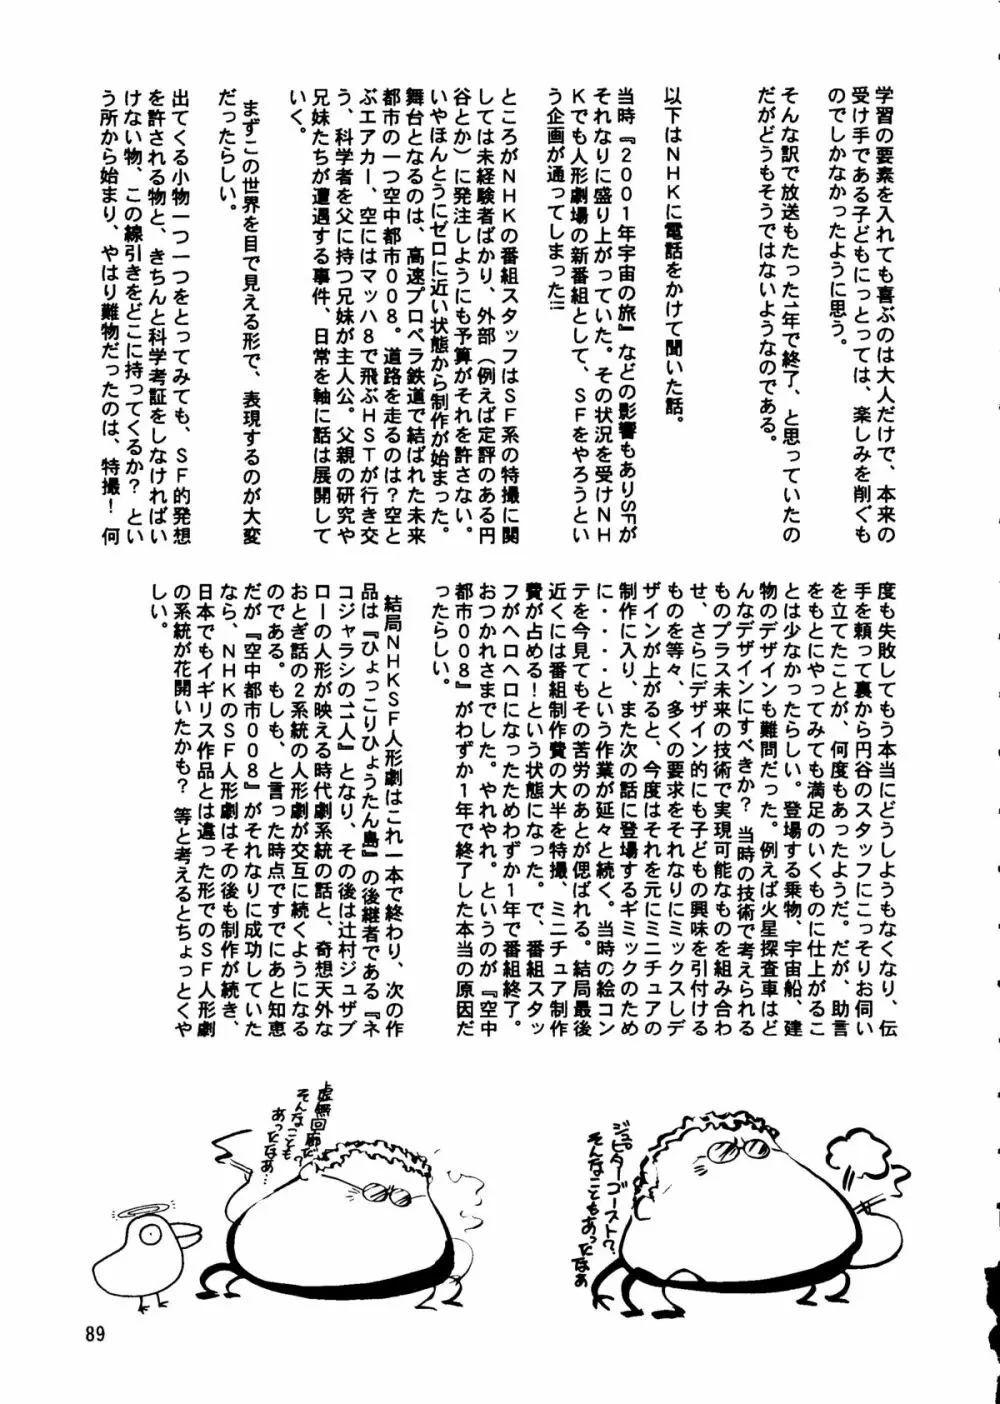 学習の要素を入れても喜ぶのは大人だけで、本来の
受け手である子どもにとっては、楽しみを削ぐも
のでしかなかったように思う。
そんな訳で放送もたった1年で終了、と思っていたの
だがどうもそうではないようなのである。
以下はNHKに電話をかけて聞いた話。
当時『2001年宇宙の旅』などの影響もありSFが
それなりに盛り上がっていた。その状況を受けNH
Kでも人形劇場の新番組として、SFをやろうとい
う企画が通ってしまった!!
ところがNHKの番組スタッフはSF系の特撮に関
しては未経験者ばかり、外部（例えば定評のある円
谷とか）に発注しようにも予算がそれを許さない。
いやほんとうにゼロに近い状態から制作が始まった。
舞台となるのは、高速プロペラ鉄道で結ばれた未来
都市の一つ空中都市008。道路を走るのは？空と
ぶエアカー、空にはマッハ8で飛ぶHSTが行き交
う、科学者を父に持つ兄妹が主人公。父親の研究や
兄妹たちが遭遇する事件、日常を軸に話は展開して
いく。
まずこの世界を目で見える形で、表現するのが大変
だったらしい。
出てくる小物一つ一つをとってみても、SF的発想
を許される物と、きちんと科学考証をしなければい
けない物、この線引きをどこに持ってくるか？とい
う所から始まり、やはり難物だったのは、特撮！何
度も失敗してもう本当にどうしようもなくなり、伝
手を頼って裏から円谷のスタッフにこっそりお伺い
を立てたことが、何度もあったようだ。だが、助言
をもとにやってみても満足のいくものに仕上がるこ
とは少なかったらしい。登場する乗物、宇宙船、建
物のデザインも難問だった。例えば火星探査車はど
んなデザインにすべきか？当時の技術で考えられる
ものプラス未来の技術で実現可能なものを組み合わ
せ、さらにデザイン的にも子どもの興味を引付ける
ものを等々、多くの要求をそれなりにミックスしデ
ザインが上がると、今度はそれを元にミニチュアの
制作に入り、また次の話に登場するギミックのため
に・・・・という作業が延々と続く。当時の絵コン
テを今見てもその苦労のあとが偲ばれる。結局最後
近くには番組制作費の大半を特撮、ミニチュア制作
費が占める！という状態になった。で、番組スタッ
フがヘロヘロになったためわずか1年で番組終了。
おつかれさまでした。やれやれ。というのが『空中
都市008』がわずか1年で終了した本当の原因だ
ったらしい。
結局NHKSF人形劇はこれ一本で終わり、次の作
品は『ひょっこりひょうたん島』の後継者である『ネ
コジャラシの11人』となり、その後は辻村ジュザブ
ローの人形が映える時代劇系統の話と、奇想天外な
おとぎ話の2系統の人形劇が交互に続くようになる
のである。もしも、と言った時点ですでにあと知恵
だが『空中都市008』がそれなりに成功していた
なら、NHKのSF人形劇はその後も制作が続き、
日本でもイギリス作品とは違った形でのSF人形劇
の系統が花開いたかも？等と考えるとちょっとくや
しい。
ジュピターゴースト？
そんなこともあったなぁ
虚無回廊だ？
そんなことも
あったなぁ…
89